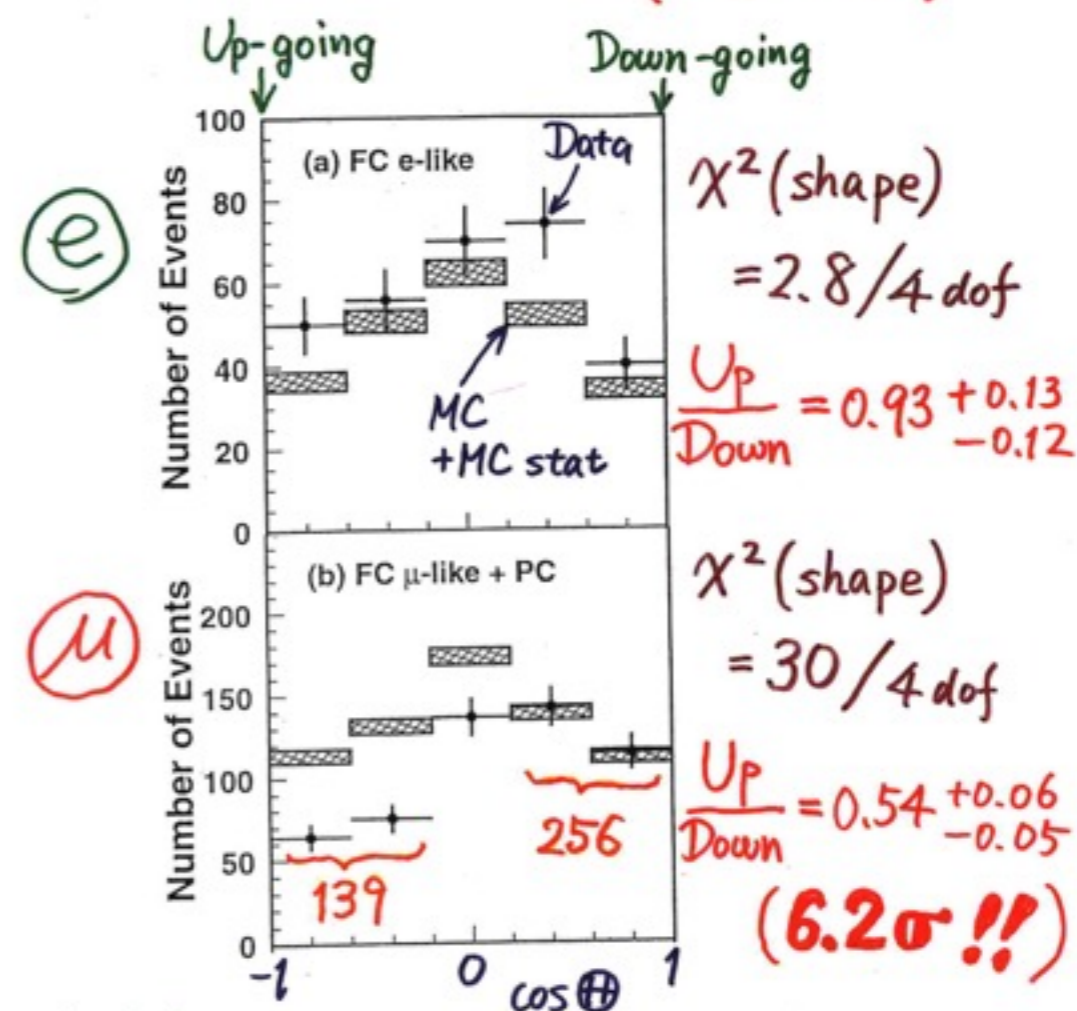 Up-going
Down-going
e
Number of Events
100
80
60
40
20
0
(a) FC e-like
Data
MC
+MC stat
χ² (shape)
= 2.8 / 4 dof
Up/Down = 0.93 +0.13 -0.12
μ
Number of Events
200
150
100
50
0
(b) FC μ-like + PC
139
256
-1 0 1
cos Θ
χ² (shape)
= 30 / 4 dof
Up/Down = 0.54 +0.06 -0.05
(6.2σ !!)